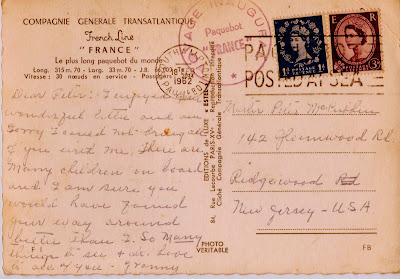 COMPAGNIE GENERALE TRANSATLANTIQUE
French Line
"FRANCE"
Le plus long paquebot du monde
Long. 315 m. 70 - Larg. 33 m. 70 - J.B.
Vitesse : 30 nœuds en service - Passagers
Dear Peter: I enjoyed your
wonderful letter and am
sorry I could not bring
if you with me. There are
many children on board
and I am sure you
would have found
your way around
better than I. So Many
things to see + do. Love
to all of you - Granny
F
PHOTO
VERITABLE
EDITIONS de LUXE ESTEL
Rue Lacourbe PARIS-XV
Cliché Compagnie Générale Transatlantique
Reproduction Interdite
VOYAGE INAUGURAL
Paquebot
"FRANCE"
1962
PAQUEBOT
POSTED AT SEA
E R
1D
3D
Master Peter
142 Glenwood Rd
Ridgewood
New Jersey - USA
FB